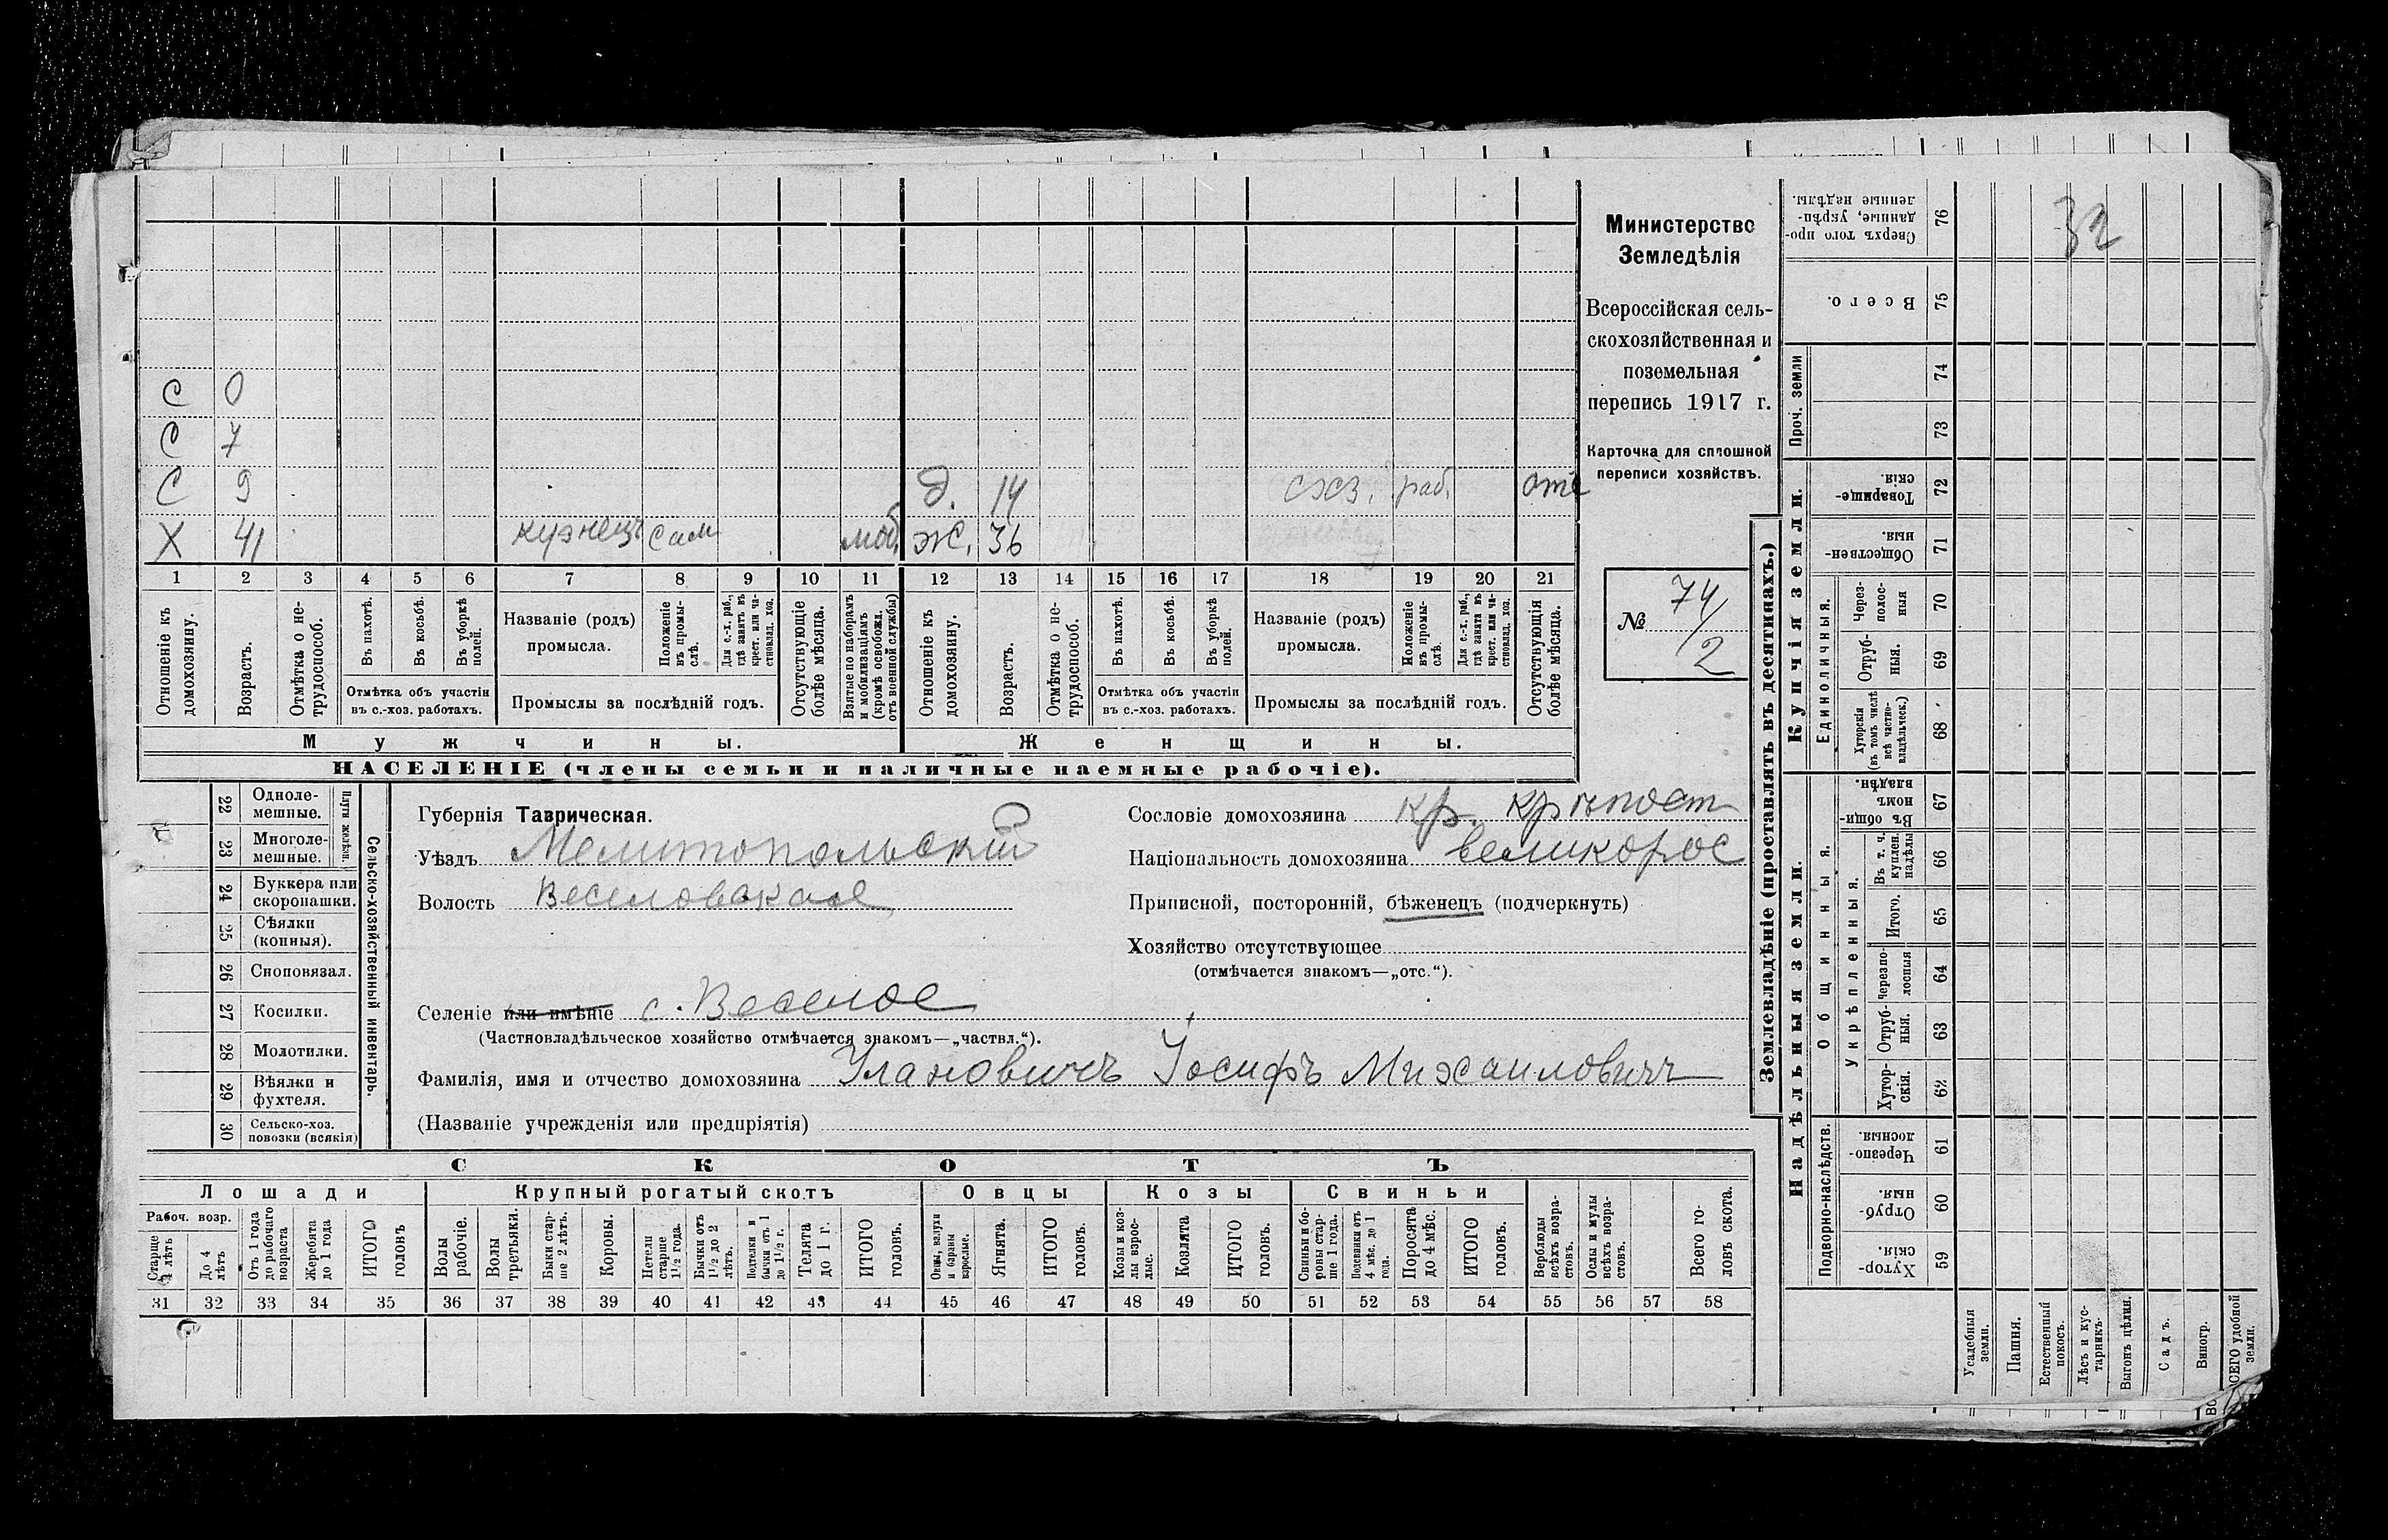 С 0
С 7
С 9 д. 14 схз. раб. отс
Х 41 кузнецъ сам моб. ж. 36
1 2 3 4 5 6 7 8 9 10 11 12 13 14 15 16 17 18 19 20 21
Отношеніе къ домохозяину.
Возрастъ.
Отмѣтка о не-трудоспособ.
Въ пахотѣ.
Въ косьбѣ.
Въ уборкѣ полей.
Отмѣтка объ участіи
въ с.-хоз. работахъ.
Названіе (родъ)
промысла.
Положеніе въ промы-слѣ.
Для с.-х. раб., гдѣ занятъ въ крест. или ча-стновлад. хоз.
Промыслы за послѣдній годъ.
Отсутствующіе болѣе мѣсяца.
Взятые по наборамъ и мобилизаціямъ (кромѣ освобожд. отъ военной службы)
Отношеніе къ домохозяину.
Возрастъ.
Отмѣтка о не-трудоспособ.
Въ пахотѣ.
Въ косьбѣ.
Въ уборкѣ полей.
Отмѣтка объ участіи
въ с.-хоз. работахъ.
Названіе (родъ)
промысла.
Положеніе въ промы-слѣ.
Для с.-х. раб., гдѣ занята въ крест. или ча-стновлад. хоз.
Промыслы за послѣдній годъ.
Отсутствующія болѣе мѣсяца.
Мужчины. Женщины.
НАСЕЛЕНІЕ (члены семьи и наличные наемные рабочіе).
Министерство
Земледѣлія
Всероссійская сель-
скохозяйственная и
поземельная
перепись 1917 г.
Карточка для сплошной
переписи хозяйствъ.
№ 74/2
Сельско-хозяйственный инвентарь.
Плуги желѣзн.
22 Одноле-мешные.
23 Многоле-мешные.
24 Буккера или скоропашки.
25 Сѣялки (конныя).
26 Сноповязал.
27 Косилки.
28 Молотилки.
29 Вѣялки и фухтеля.
30 Сельско-хоз. повозки (всякія)
Губернія Таврическая.
Уѣздъ Мелитопольскій
Волость Веселовская
Селеніе или имѣніе с. Веселое
(Частновладѣльческое хозяйство отмѣчается знакомъ—„частвл.“).
Фамилія, имя и отчество домохозяина Улановичъ Іосифъ Михаиловичъ
(Названіе учрежденія или предпріятія)
Сословіе домохозяина кр.
Національность домохозяина великорос
Приписной, посторонній, бѣженецъ (подчеркнуть)
Хозяйство отсутствующее
(отмѣчается знакомъ—„отс.“).
СКОТЪ
Лошади Крупный рогатый скотъ Овцы Козы Свиньи
Рабоч. возр.
Старше 4 лѣтъ
До 4 лѣтъ
Отъ 1 года до рабочаго возраста
Жеребята до 1 года
ИТОГО головъ
Волы рабочіе.
Волы третьяки.
Быки стар-ше 2 лѣтъ.
Коровы.
Нетели старше 1½ года.
Бычки отъ 1½ до 2 лѣтъ.
Подтелки и бычки отъ 1 до 1½ г.
Телята до 1 г.
ИТОГО головъ.
Овцы, валухи и бараны взрослые.
Ягнята.
ИТОГО головъ.
Козы и коз-лы взрос-лые.
Козлята
ИТОГО головъ.
Свиньи и бо-ровы стар-ше 1 года.
Подсвинки отъ 4 мѣс. до 1 года.
Поросята до 4 мѣс.
ИТОГО головъ.
Верблюды всѣхъ возра-стовъ.
Ослы и мулы всѣхъ возра-стовъ.
Всего го-ловъ скота.
31 32 33 34 35 36 37 38 39 40 41 42 43 44 45 46 47 48 49 50 51 52 53 54 55 56 57 58
Землевладѣніе (проставлять въ десятинахъ.)
Надѣльныя земли. Купчія земли. Проч. земли
Подворно-наслѣдств.
Общинныя.
Укрѣпленныя.
Единоличныя.
32
76 Сверхъ того про-данные, укрѣп-ленные надѣлы.
75 Всего.
74
73
72 Товарище-скія.
71 Обществен-ныя.
70 Через-полос-ныя
69 Отруб-ныя.
68 Хуторскія (въ томъ числѣ всѣ частно-владѣльческ.)
67 Въ общи-номъ владѣн.
66 Въ т. ч. куплен. надѣлы
65 Итого.
64 Черезпо-лосныя
63 Отруб-ныя.
62 Хутор-скія.
61 Черезпо-лосныя.
60 Отруб-ныя.
59 Хутор-скія.
Усадебныя земли.
Пашня.
Естественный покосъ.
Лѣсъ и кус-тарникъ.
Выгонъ цѣлин.
Садъ.
Виногр.
ВСЕГО удобной земли.